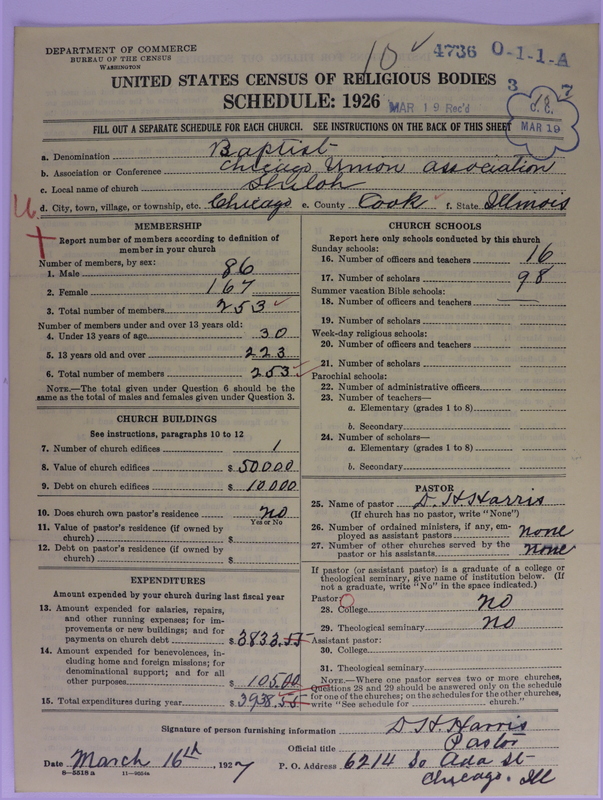 DEPARTMENT OF COMMERCE
BUREAU OF THE CENSUS
WASHINGTON
10 ✓ 4736 0-1-1-A
UNITED STATES CENSUS OF RELIGIOUS BODIES
3 7
SCHEDULE: 1926
MAR 19 Rec'd
C. C.
MAR 19
FILL OUT A SEPARATE SCHEDULE FOR EACH CHURCH. SEE INSTRUCTIONS ON THE BACK OF THIS SHEET
a. Denomination Baptist
b. Association or Conference Chicago Union Association
c. Local name of church Shiloh
d. City, town, village, or township, etc. Chicago e. County Cook f. State Illinois
MEMBERSHIP
Report number of members according to definition of
member in your church
Number of members, by sex:
1. Male 86
2. Female 167
3. Total number of members 253
Number of members under and over 13 years old:
4. Under 13 years of age 30
5. 13 years old and over 223
6. Total number of members 253
NOTE.—The total given under Question 6 should be the
same as the total of males and females given under Question 3.
CHURCH BUILDINGS
See instructions, paragraphs 10 to 12
7. Number of church edifices 1
8. Value of church edifices $ 50000
9. Debt on church edifices $ 10000
10. Does church own pastor's residence? no
Yes or No
11. Value of pastor's residence (if owned by
church) $
12. Debt on pastor's residence (if owned by
church) $
EXPENDITURES
Amount expended by your church during last fiscal year
13. Amount expended for salaries, repairs,
and other running expenses; for im-
provements or new buildings; and for
payments on church debt $ 3833.55
14. Amount expended for benevolences, in-
cluding home and foreign missions; for
denominational support; and for all
other purposes $ 105.00
15. Total expenditures during year $ 3938.55
CHURCH SCHOOLS
Report here only schools conducted by this church
Sunday schools:
16. Number of officers and teachers 16
17. Number of scholars 98
Summer vacation Bible schools:
18. Number of officers and teachers
19. Number of scholars
Week-day religious schools:
20. Number of officers and teachers
21. Number of scholars
Parochial schools:
22. Number of administrative officers
23. Number of teachers—
a. Elementary (grades 1 to 8)
b. Secondary
24. Number of scholars—
a. Elementary (grades 1 to 8)
b. Secondary
PASTOR
25. Name of pastor D. H. Harris
(If church has no pastor, write "None")
26. Number of ordained ministers, if any, em-
ployed as assistant pastors none
27. Number of other churches served by the
pastor or his assistants none
If pastor (or assistant pastor) is a graduate of a college or
theological seminary, give name of institution below. (If
not a graduate, write "No" in the space indicated.)
Pastor:
28. College no
29. Theological seminary no
Assistant pastor:
30. College
31. Theological seminary
NOTE.—Where one pastor serves two or more churches,
Questions 28 and 29 should be answered only on the schedule
for one of the churches; on the schedules for the other churches,
write "See schedule for church."
Signature of person furnishing information D. H. Harris
Official title Pastor
Date March 16th, 1927 P. O. Address 6214 So Ada St
8—5518 a
Chicago. Ill